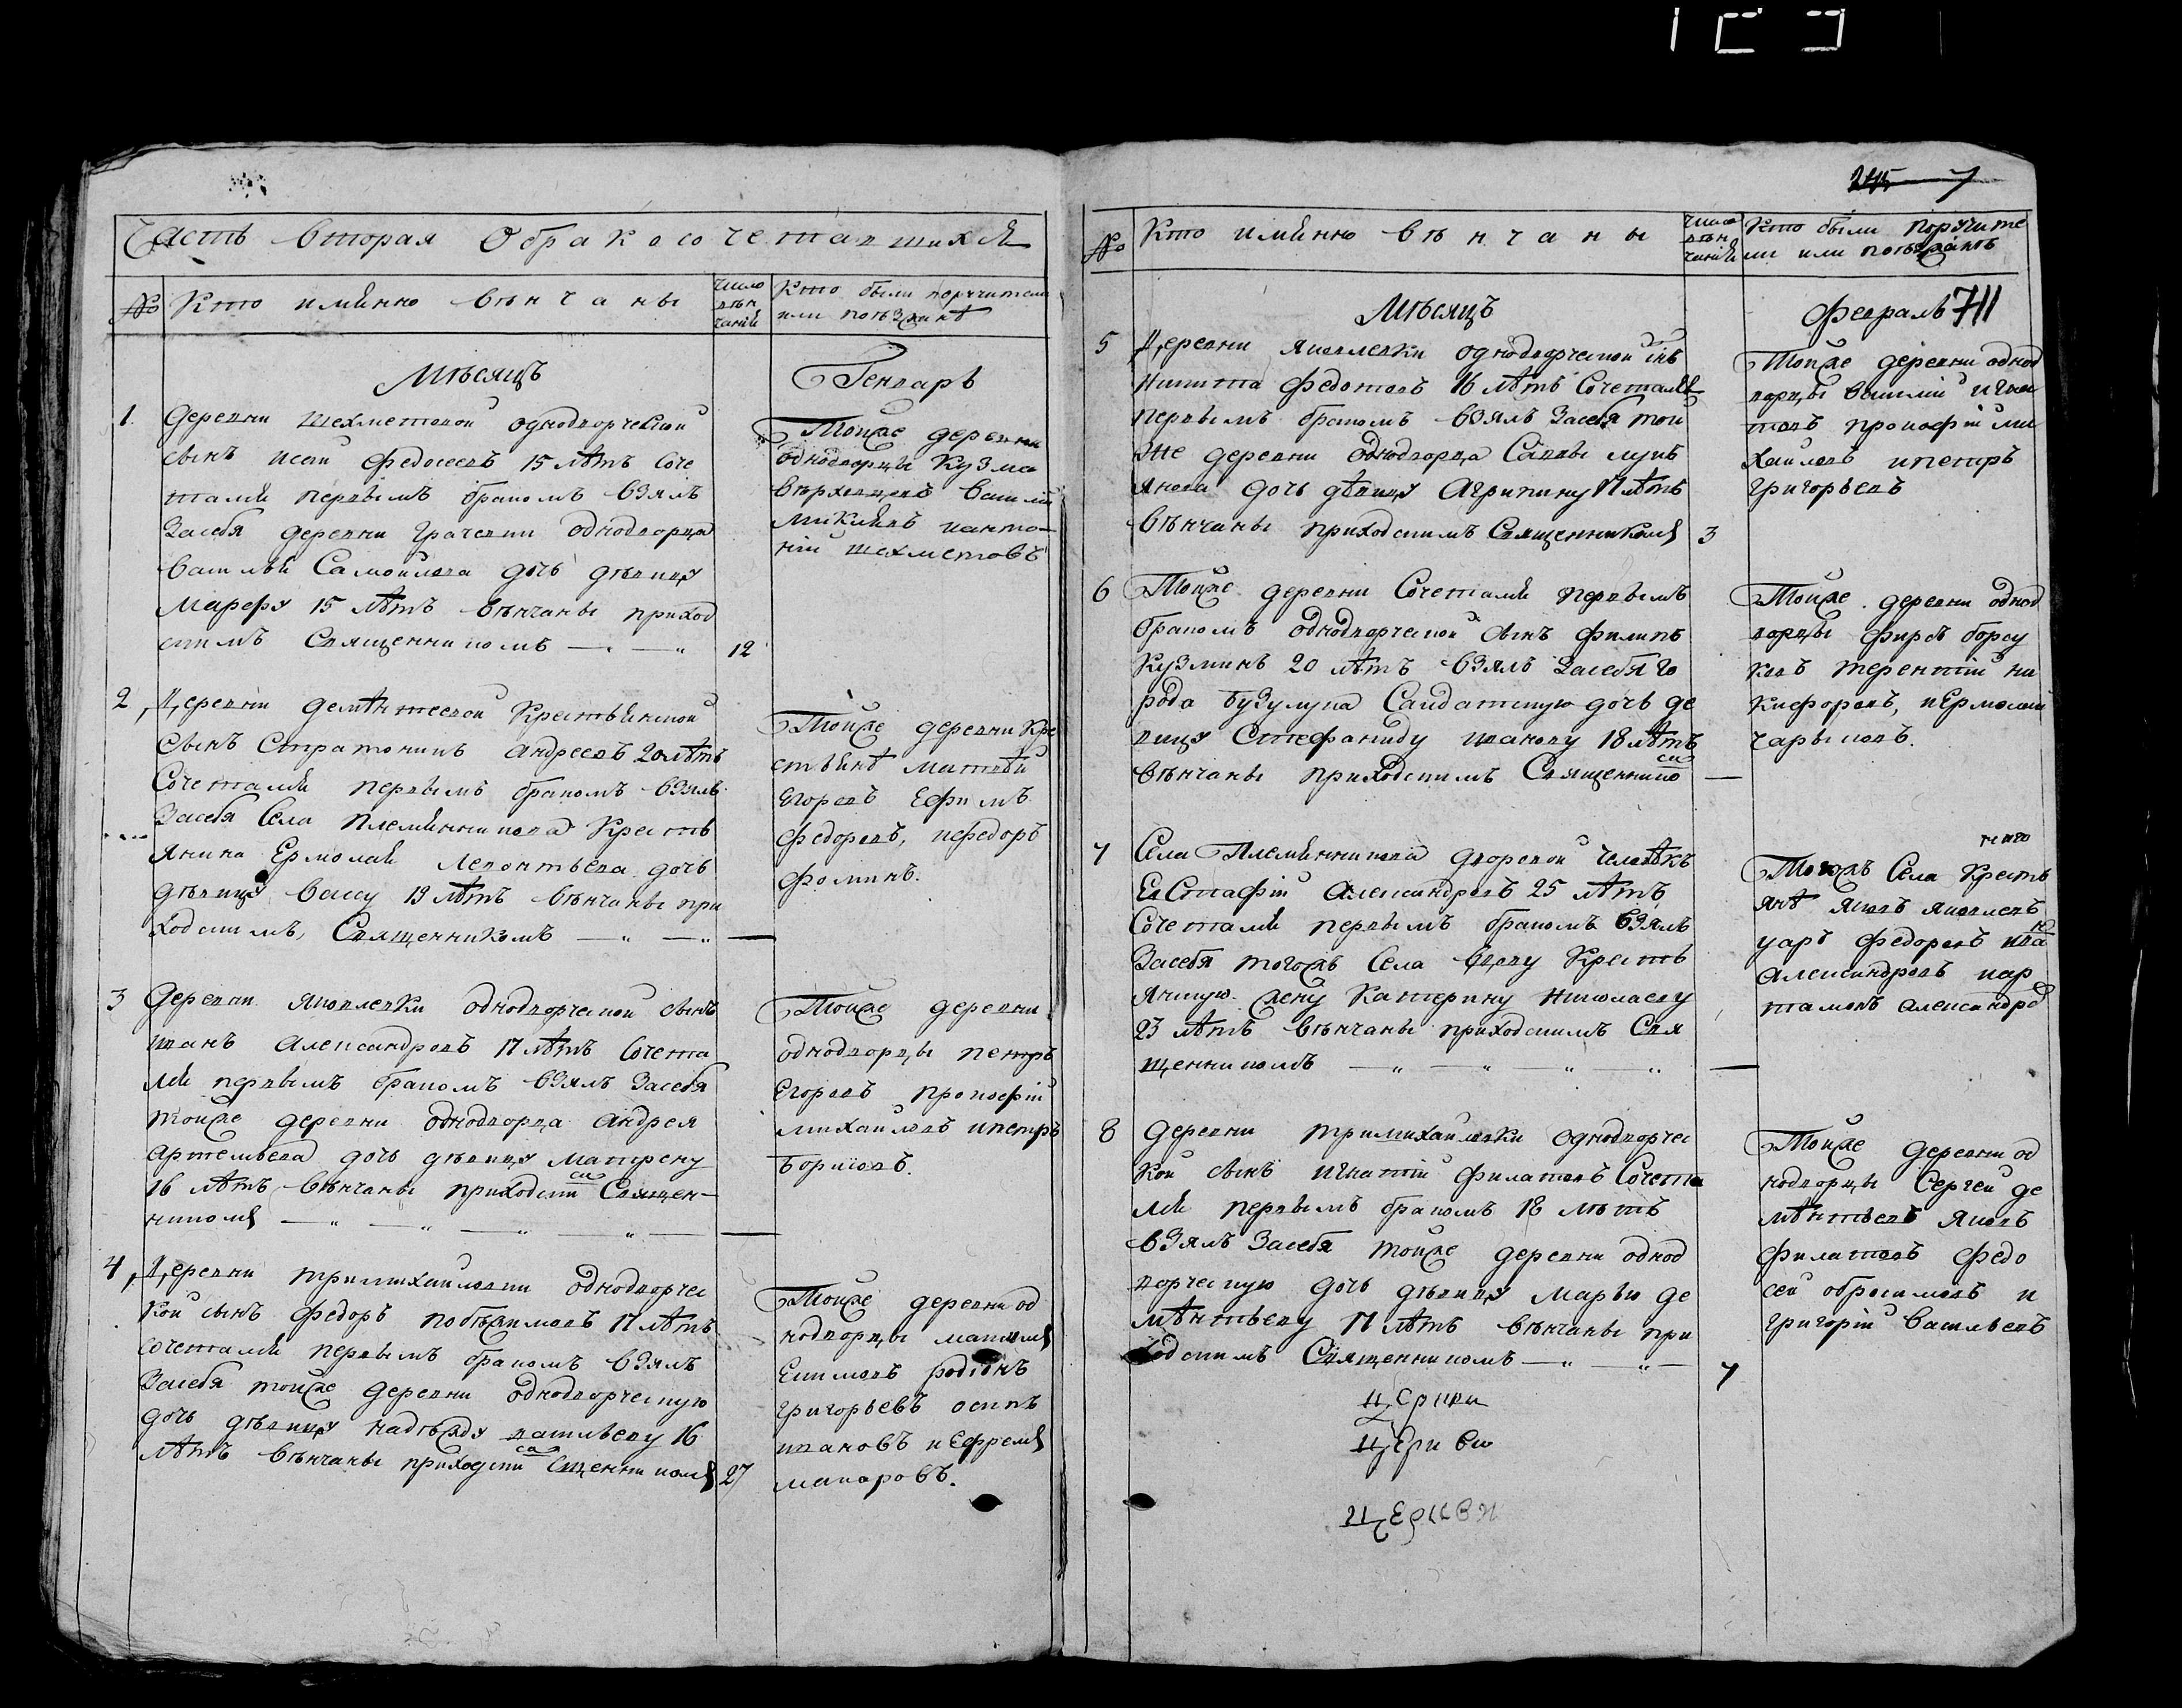 Часть вторая обракосочетавшихся
№ Кто имянно венчаны
число вѣнчаній
Кто были поручители или поѣзжанѣ
Мѣсяцъ Генварь
1. Деревни шехметевой однодворческой
сынъ исай Федосеевъ 15 лѣтъ Соче
тался первымъ бракомъ взялъ
Засебя деревни Грачевки однодворца
василья Самойлова дочь дѣвицу
Марѳу 15 лѣтъ вѣнчаны приход
скимъ Священникомъ 12
Тойже деревни
однодворцы Кузма
василій
Микляевъ ианто
ній шехметовъ
2, Деревни деметьевой Крестьянской
сынъ Стратоникъ андреевъ 20 лѣтъ
Сочетался первымъ бракомъ взялъ
Засебя Села племянникова Кресть
янина Ермолая Леонтьева дочь
дѣвицу вассу 19 лѣтъ вѣнчаны при
ходскимъ Священникомъ
Тойже деревни Кре
стьянѣ матвѣй
Егоровъ Ефимъ
федоровъ, ифедоръ
фоминъ.
3 Деревни яковлевки однодворческой сынъ
иванъ александровъ 17 лѣтъ Сочета
лся первымъ бракомъ взялъ Засебя
тойже деревни однодворца андрея
артемьева дочь дѣвицу матрену
16 лѣтъ вѣнчаны приходски Священ
никомъ
Тойже деревни
однодворцы петръ
Егоровъ прокофій
михайловъ ипетръ
борисовъ.
4, Деревни тримихайловки однодворчес
кой сынъ федоръ 17 лѣтъ
сочетался первымъ бракомъ взялъ
Засебя тойже деревни однодворческую
дочь дѣвицу надѣжду васильеву 16
лѣтъ вѣнчаны приходски Сщенникомъ 27
Тойже деревни од
нодворцы максимъ
родіонъ
григорьевъ осипъ
ивановъ иЕфремъ
макаровъ.
245 7
№ Кто имянно вѣнчаны
число вѣнчаній
Кто были поручите
ли или поѣзжанѣ
Мѣсяцъ февраль 711
5 Деревни яковлевки однодворческой снъ
никита федотовъ 16 лѣтъ Сочетался
первымъ бракомъ взялъ Засебя той
же деревни однодворца Саввы лукъ
янова дочь дѣвицу Агрипину 17 лѣтъ
вѣнчаны приходскимъ Священникомъ 3
Тойже деревни однод
ворцы василій игна
товъ прокофій ми
хайловъ ипетръ
григорьевъ
6 Тойже деревни Сочетался первымъ
бракомъ однодворческой сынъ филипъ
Кузминъ 20 лѣтъ взялъ Засебя го
рода бузулука Салдатскую дочь де
вицу Стефаниду иванову 18 лѣтъ
вѣнчаны приходскимъ Священнико
Тойже деревни однод
ворцы фирсъ борсу
ковъ терентій ни
кифоровъ, иЕрмолай
чарыковъ.
7 Села Племянникова дворовой человѣкъ
Евстафій александровъ 25 лѣтъ
Сочетался первымъ бракомъ взялъ
Засебя тогожъ Села вдову Кресть
янскую жену Катерину николаеву
23 лѣтъ вѣнчаны приходскимъ Свя
щенникомъ
Тогожъ Села Кресть
янѣ яковъ яковлевъ
уаръ федоровъ ива
александровъ иар
тамонъ александро
8 деревни тримихайловки однодворчес
кой сынъ игнатій филатовъ Сочета
лся первымъ бракомъ 18 лѣтъ
взялъ Засебя тойже деревни однод
ворческую дочь дѣвицу марью де
мѣнтьеву 17 лѣтъ вѣнчаны при
ходскимъ Священникомъ 7
Тойже деревни од
нодворцы Сергей де
мѣнтьевъ яковъ
филатовъ федо
сей обросимовъ и
григорій васильевъ
церкви